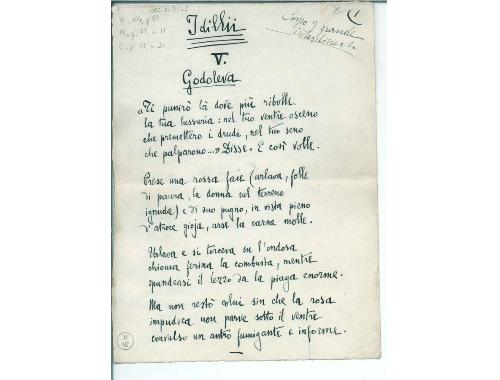 Idillii
V.
Godoleva
"Ti punirò là dove più ribolle
la tua lussuria: nel tuo ventre osceno
che premettero i drudi, nel tuo seno
che palparono..." Disse. E così volle.
Prese una rossa face (urlava, folle
di paura, la donna sul terreno
ignuda) e di suo pugno, in vista pieno
d'atroce gioja, arse la carne molle.
Urlava e si torceva su l'ondosa
chioma ferina la combusta, mentre
spandeasi il lezzo da la piaga enorme.
Ma non restò colui sin che la rosa
impudica non parve sotto il ventre
convulso un antro fumigante e informe.